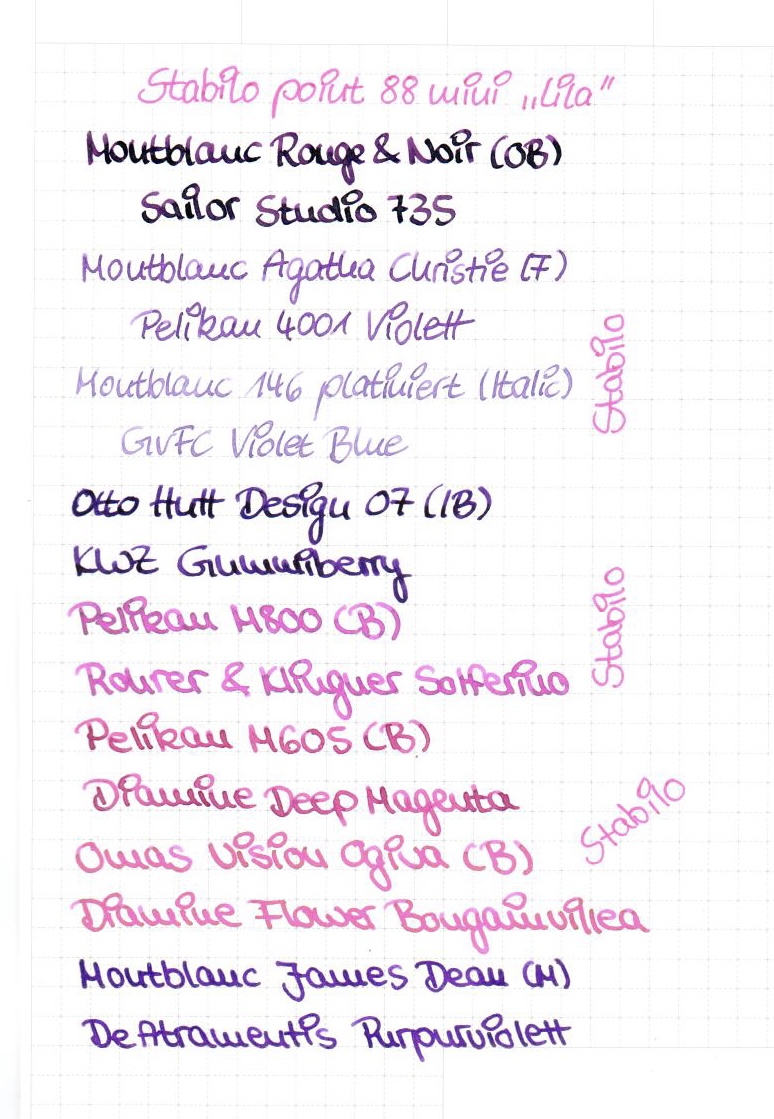 Stabilo point 88 mini „Lila“
Montblanc Rouge & Noir (OB)
Sailor Studio 735
Montblanc Agatha Christie (F)
Pelikan 4001 Violett
Stabilo
Montblanc 146 platiniert (Italic)
GvFC Violet Blue
Otto Hutt Design 07 (IB)
KWZ Gummiberry
Stabilo
Pelikan M800 (B)
Rohrer & Klingner Solferino
Pelikan M605 (B)
Diamine Deep Magenta
Stabilo
Omas Vision Ogiva (B)
Diamine Flower Bougainvillea
Montblanc James Dean (M)
De Atramentis Purpurviolett